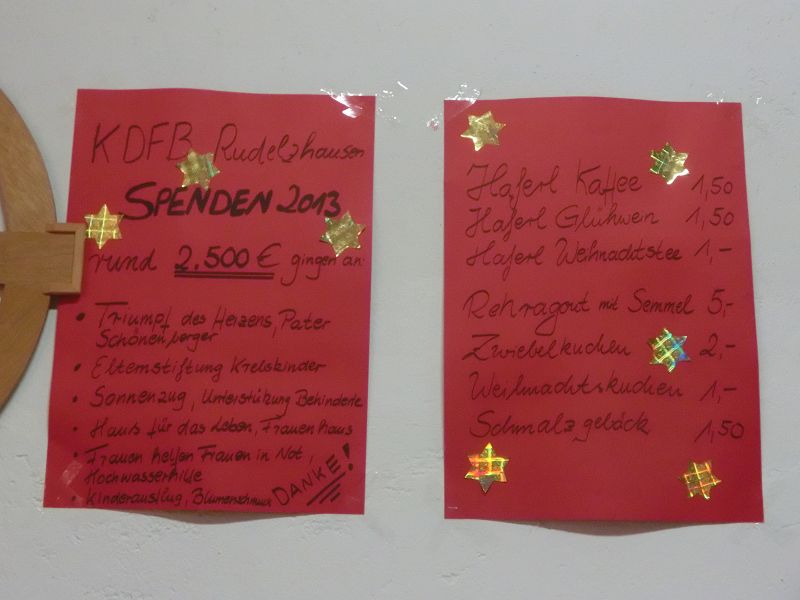 KDFB Rudelzhausen
SPENDEN 2013
rund 2.500 € gingen an:
• Triumpf des Herzens, Pater
Schönenberger
• Elternstiftung Krebskinder
• Sonnenzug, Unterstützung Behinderte
• Haus für das Leben, Frauenhaus
• Frauen helfen Frauen in Not,
Hochwasserhilfe
• Kinderausflug, Blumenschmuck DANKE!
Haferl Kaffee 1,50
Haferl Glühwein 1,50
Haferl Weihnachtstee 1,-
Rehragout mit Semmel 5,-
Zwiebelkuchen 2,-
Weihnachtskuchen 1,-
Schmalzgebäck 1,50